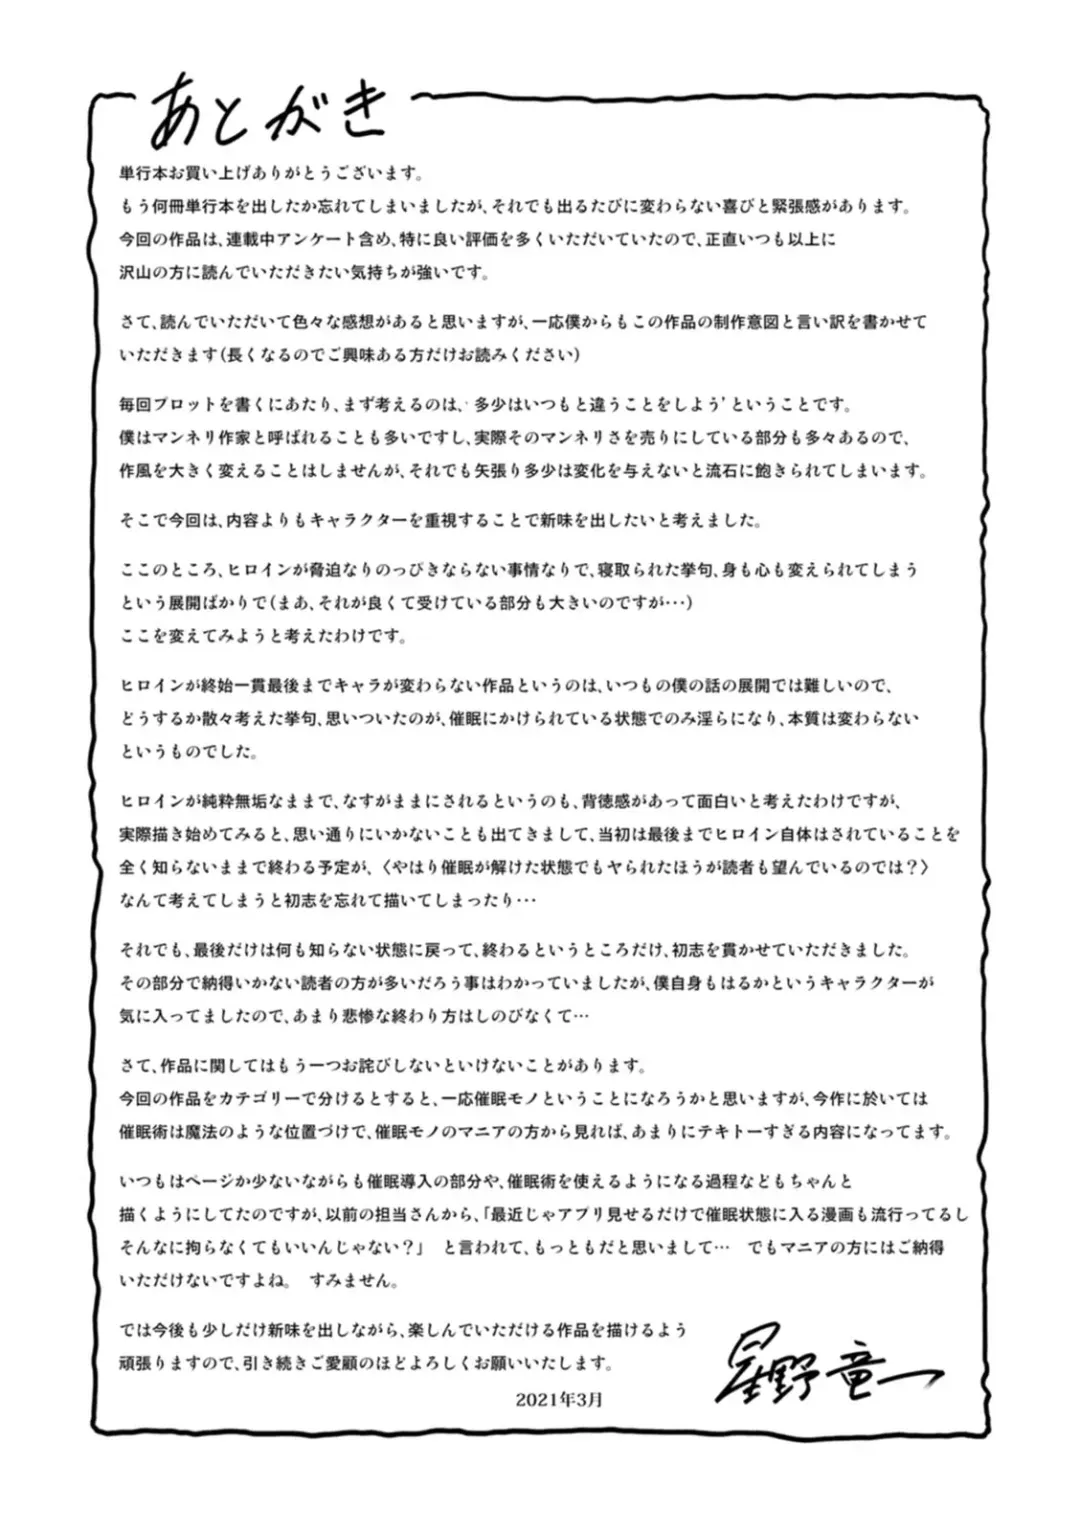 あとがき
単行本お買い上げありがとうございます。
もう何冊単行本を出したか忘れてしまいましたが、それでも出るたびに変わらない喜びと緊張感があります。
今回の作品は、連載中アンケート含め、特に良い評価を多くいただいていたので、正直いつも以上に
沢山の方に読んでいただきたい気持ちが強いです。
さて、読んでいただいて色々な感想があると思いますが、一応僕からもこの作品の制作意図と言い訳を書かせて
いただきます(長くなるのでご興味ある方だけお読みください)
毎回プロットを書くにあたり、まず考えるのは、‘多少はいつもと違うことをしよう’ということです。
僕はマンネリ作家と呼ばれることも多いですし、実際そのマンネリさを売りにしている部分も多々あるので、
作風を大きく変えることはしませんが、それでも矢張り多少は変化を与えないと流石に飽きられてしまいます。
そこで今回は、内容よりもキャラクターを重視することで新味を出したいと考えました。
ここのところ、ヒロインが脅迫なりのっぴきならない事情なりで、寝取られた挙句、身も心も変えられてしまう
という展開ばかりで(まあ、それが良くて受けている部分も大きいのですが･･･)
ここを変えてみようと考えたわけです。
ヒロインが終始一貫最後までキャラが変わらない作品というのは、いつもの僕の話の展開では難しいので、
どうするか散々考えた挙句、思いついたのが、催眠にかけられている状態でのみ淫らになり、本質は変わらない
というものでした。
ヒロインが純粋無垢なままで、なすがままにされるというのも、背徳感があって面白いと考えたわけですが、
実際描き始めてみると、思い通りにいかないことも出てきまして、当初は最後までヒロイン自体はされていることを
全く知らないままで終わる予定が、〈やはり催眠が解けた状態でもヤられたほうが読者も望んでいるのでは？〉
なんて考えてしまうと初志を忘れて描いてしまったり･･･
それでも、最後だけは何も知らない状態に戻って、終わるというところだけ、初志を貫かせていただきました。
その部分で納得いかない読者の方が多いだろう事はわかっていましたが、僕自身もはるかというキャラクターが
気に入ってましたので、あまり悲惨な終わり方はしのびなくて…
さて、作品に関してはもう一つお詫びしないといけないことがあります。
今回の作品をカテゴリーで分けるとすると、一応催眠モノということになろうかと思いますが、今作に於いては
催眠術は魔法のような位置づけで、催眠モノのマニアの方から見れば、あまりにテキトーすぎる内容になってます。
いつもはページか少ないながらも催眠導入の部分や、催眠術を使えるようになる過程などもちゃんと
描くようにしてたのですが、以前の担当さんから、「最近じゃアプリ見せるだけで催眠状態に入る漫画も流行ってるし
そんなに拘らなくてもいいんじゃない？」　と言われて、もっともだと思いまして…　でもマニアの方にはご納得
いただけないですよね。　すみません。
では今後も少しだけ新味を出しながら、楽しんでいただける作品を描けるよう
頑張りますので、引き続きご愛顧のほどよろしくお願いいたします。
2021年3月
星野竜一